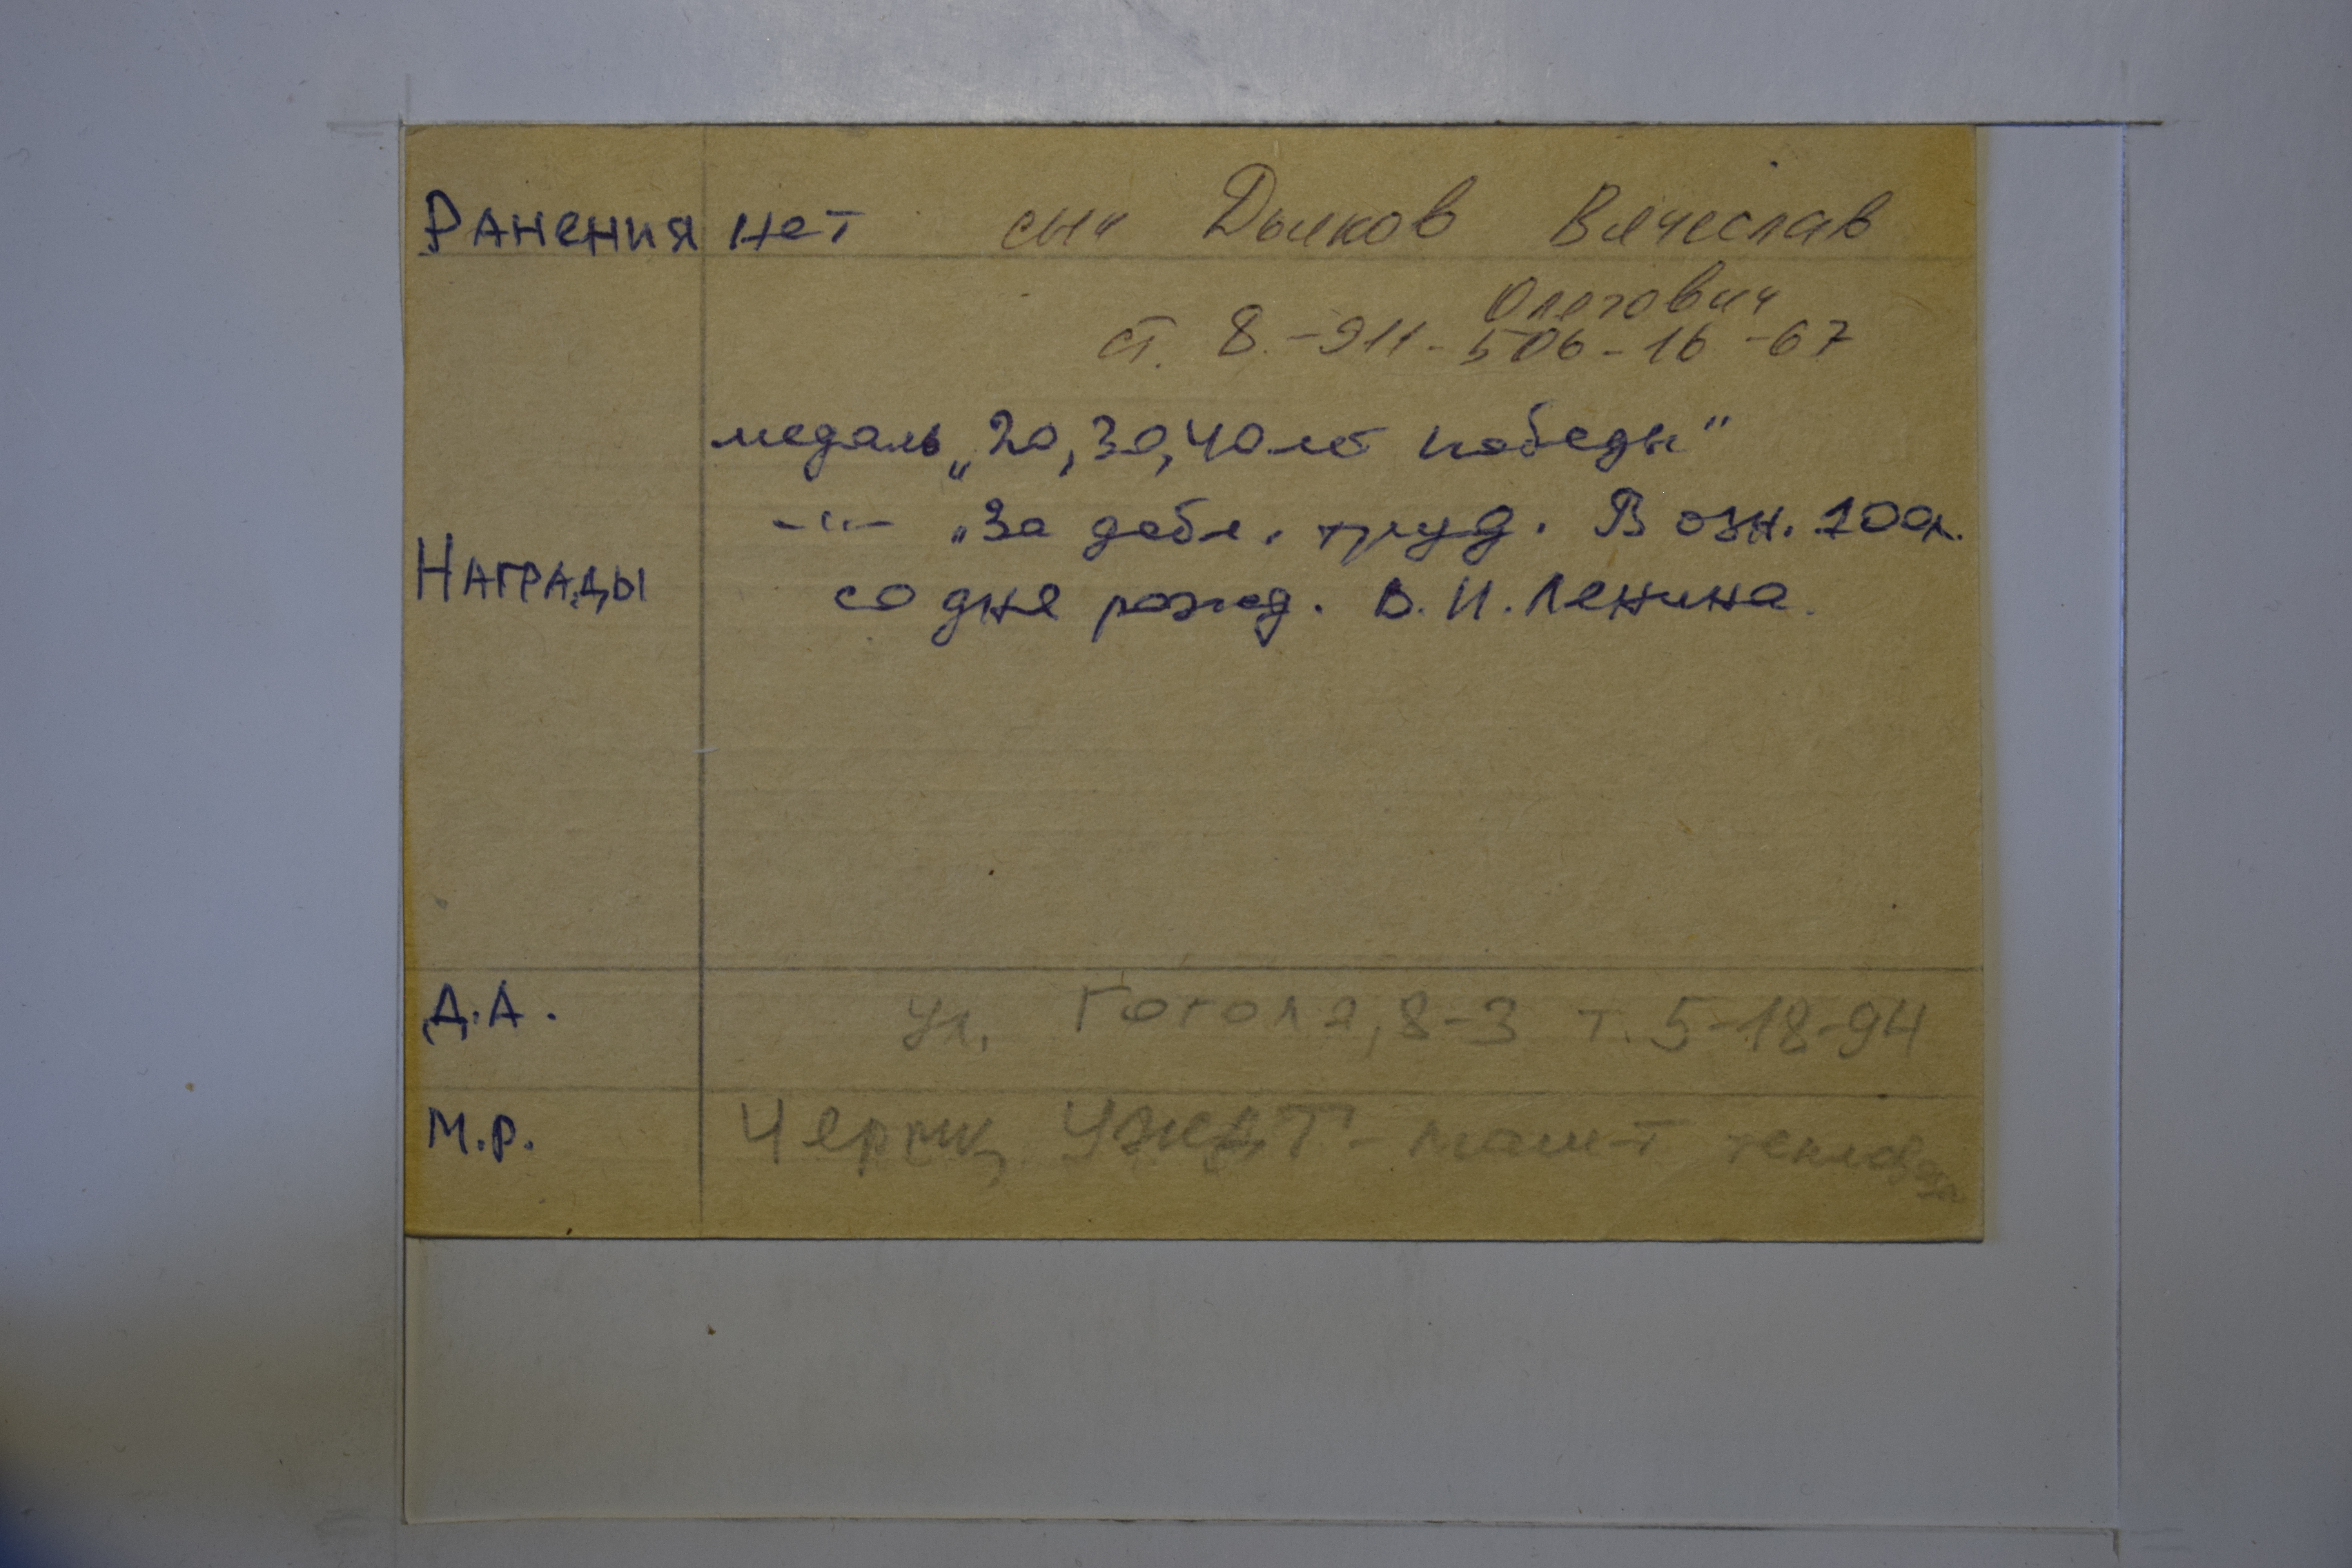 Ранения нет сын Дьяков Вячеслав
Олегович
ст. 8-911-506-16-67
медаль „20, 30, 40 лет победы"
-"- „За добл. труд. В озн. 100л.
Награды
со дня рожд. В.И. Ленина.
Д.А. ул. Гоголя, 8-3 т. 5-18-94
М.р. УЖДТ - маш-т тепловоза